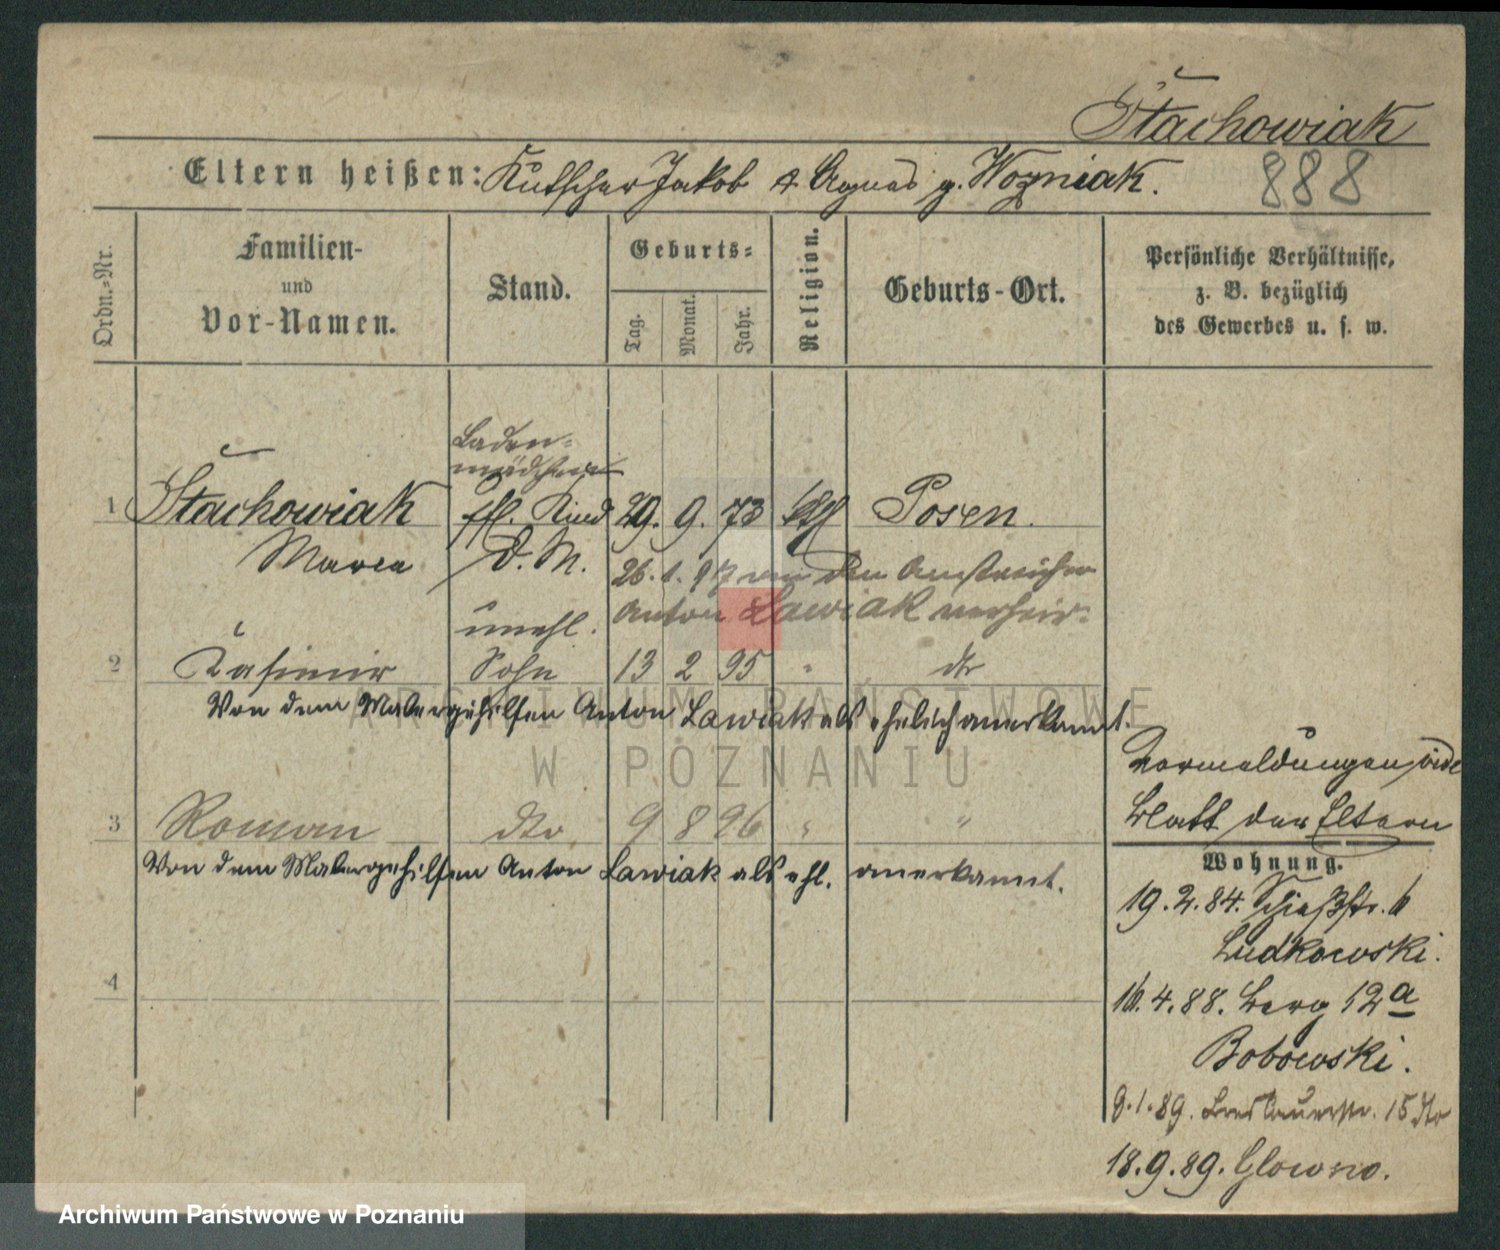 Stachowiak
Eltern heißen: Kutscher Jakob & Agnes g. Wozniak.
888
Ordn.-Nr.
Familien-
und
Vor-Namen.
Stand.
Geburts-
Tag. Monat. Jahr.
Religion.
Geburts-Ort.
Persönliche Verhältnisse,
z. B. bezüglich
des Gewerbes u. s. w.
Laden-
mädchen
1 Stachowiak Kind 29. 9. 73 kth Posen.
Maria D. M. 26. 1. 97 an den Anstreicher
unehl. Anton Lawiak verheir.
2 Kasimir Sohn 13 2 95 " dto
Von dem Malergehilfen Anton Lawiak als ehelich anerkannt.
3 Roman dto 9 8 96 " "
Von dem Malergehilfen Anton Lawiak als ehl. anerkannt.
4
Vermeldungen, vide
Blatt der Eltern
Wohnung.
19. 2. 84. Schießstr. 6
Ludkowski.
16. 4. 88. Berg 12a
Bobowski.
9. 1. 89. Breslauerstr. 15 dto
18. 9. 89. Glowno.
ARCHIWUM PAŃSTWOWE
W POZNANIU
Archiwum Państwowe w Poznaniu